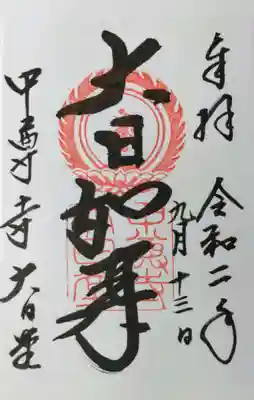 奉拝 令和二年
九月十三日
大日如来
中尊寺 大日堂